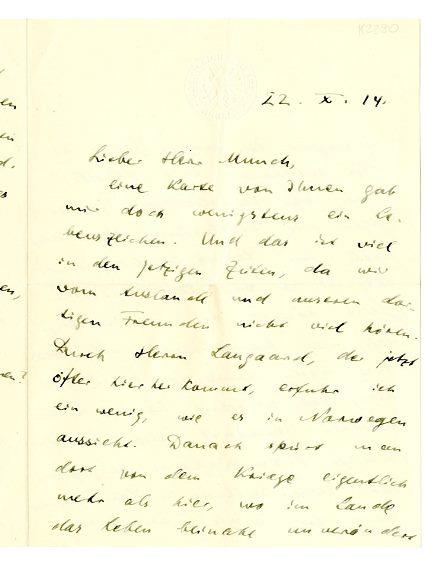 K2290
22. X. 14.
Lieber Herr Munch,
eine Karte von Ihnen gab
mir doch wenigstens ein Le-
benszeichen. Und das ist viel
in den jetzigen Zeiten, da wir
vom Auslande und unseren dor-
tigen Freunden nicht viel hören.
Durch Herrn Langaard, der jetzt
öfter hierher kommt, erfuhr ich
ein wenig, wie es in Norwegen
aussieht. Danach spürt man
dort von dem Kriege eigentlich
mehr als hier, wo im Lande
das Leben beinahe unverändert